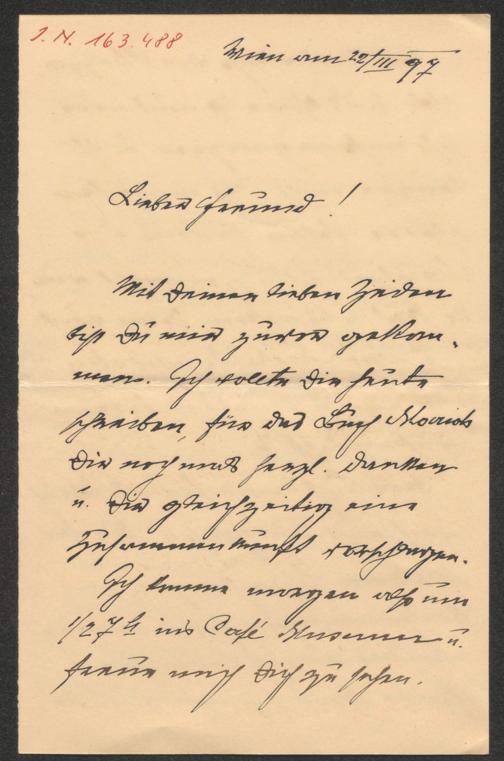 I. N. 163.488
Wien am 22/III 97
Lieber Freund!
Mit Deinen lieben Zeilen
bist Du mir zuvor gekom-
men. Ich wollte Dir heute
schreiben, für das Buch Morris
Dir nochmals herzl. danken
u. Dir gleichzeitig eine
Zusammenkunft vorschlagen.
Ich komme morgen also um
1/2 7 h ins Café Museum u.
freue mich Dich zu sehen.